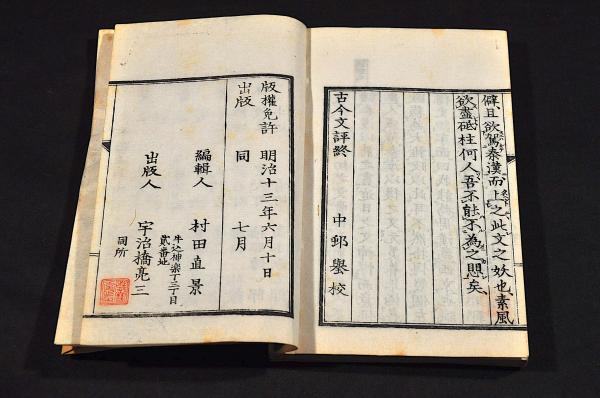 僻且欲駕秦漢而上之此文之妖也素風
欲盡砥柱何人吾不能不為之悶矣
古今文評終
中邨鏊校
版權免許 明治十三年六月十日
出版 同 七月
編輯人 村田直景
牛込神楽丁三丁目
貳番址
出版人 宇治橋亮三
同所